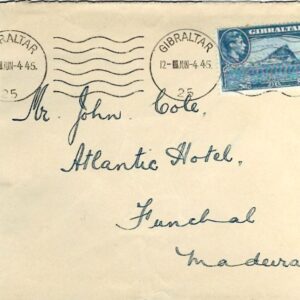 GIBRALTAR
JUN-4 45
25
GIBRALTAR
12-
JUN-4 45
25
GIBRALTAR
Mr. John Cole,
Atlantic Hotel,
Funchal
Madeira